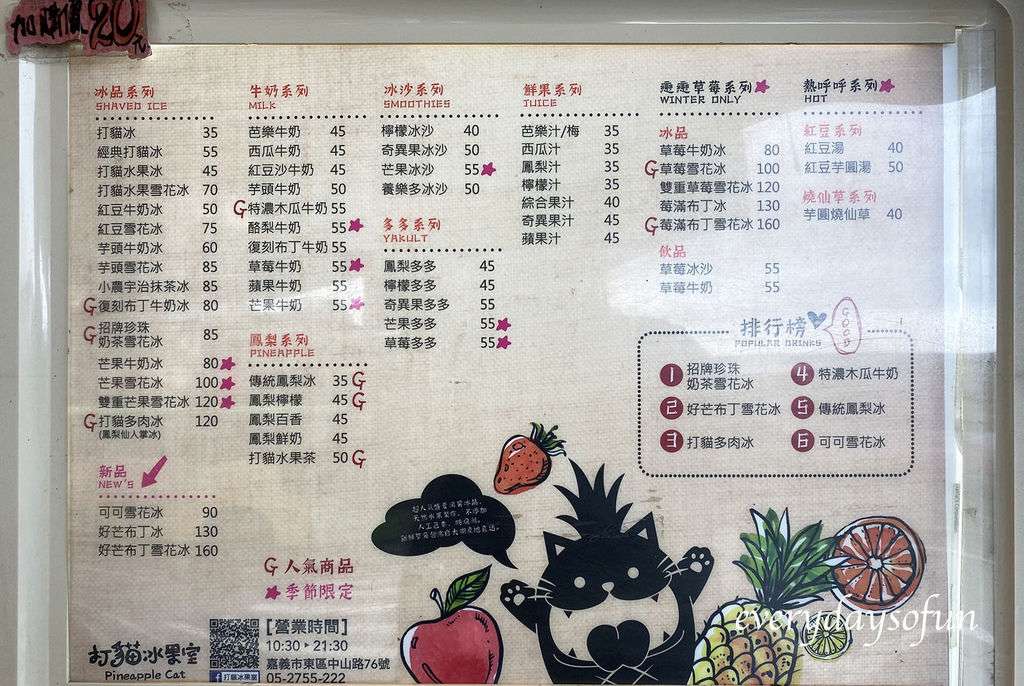 加購價20元
冰品系列
SHAVED ICE
打貓冰 35
經典打貓冰 55
打貓水果冰 45
打貓水果雪花冰 70
紅豆牛奶冰 50
紅豆雪花冰 75
芋頭牛奶冰 60
芋頭雪花冰 85
小農宇治抹茶冰 85
G復刻布丁牛奶冰 80
G招牌珍珠
奶茶雪花冰 85
芒果牛奶冰 80
芒果雪花冰 100
雙重芒果雪花冰 120
G打貓多肉冰 120
(鳳梨仙人掌冰)
新品
NEW'S
可可雪花冰 90
好芒布丁冰 130
好芒布丁雪花冰 160
牛奶系列
MILK
芭樂牛奶 45
西瓜牛奶 45
紅豆沙牛奶 45
芋頭牛奶 50
G特濃木瓜牛奶 55
酪梨牛奶 55
復刻布丁牛奶 55
草莓牛奶 55
蘋果牛奶 55
芒果牛奶 55
鳳梨系列
PINEAPPLE
傳統鳳梨冰 35 G
鳳梨檸檬 45 G
鳳梨百香 45
鳳梨鮮奶 45
打貓水果茶 50 G
G人氣商品
季節限定
冰沙系列
SMOOTHIES
檸檬冰沙 40
奇異果冰沙 50
芒果冰沙 55
養樂多冰沙 50
多多系列
YAKULT
鳳梨多多 45
檸檬多多 45
奇異果多多 55
芒果多多 55
草莓多多 55
鮮果系列
JUICE
芭樂汁/梅 35
西瓜汁 35
鳳梨汁 35
檸檬汁 35
綜合果汁 40
奇異果汁 45
蘋果汁 45
WINTER ONLY
冰品
草莓牛奶冰 80
G草莓雪花冰 100
雙重草莓雪花冰 120
莓滿布丁冰 130
G莓滿布丁雪花冰 160
飲品
草莓冰沙 55
草莓牛奶 55
熱呼呼系列
HOT
紅豆系列
紅豆湯 40
紅豆芋圓湯 50
燒仙草系列
芋圓燒仙草 40
排行榜
GOOD
POPULAR DRINKS
1 招牌珍珠
奶茶雪花冰
2 好芒布丁雪花冰
3 打貓多肉冰
4 特濃木瓜牛奶
5 傳統鳳梨冰
6 可可雪花冰
打貓冰果室
Pineapple Cat
f 打貓冰果室
[營業時間]
10:30 ▸ 21:30
嘉義市東區中山路76號
05-2755-222
everydaysofun